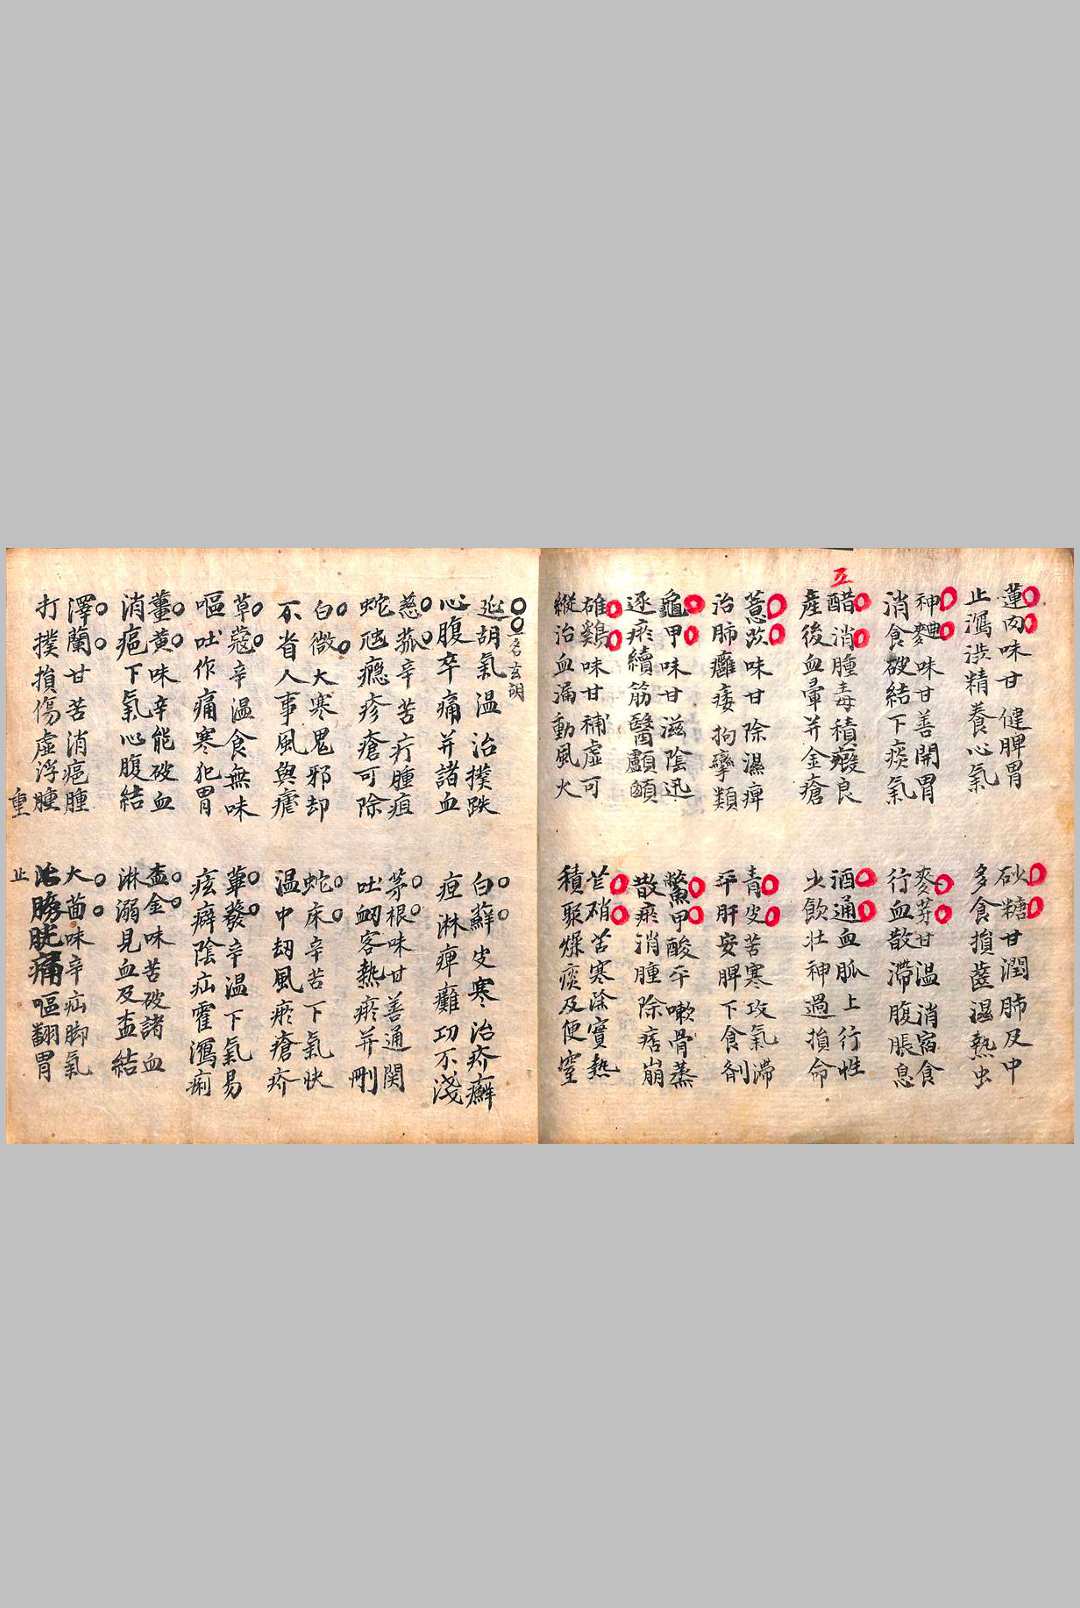 蓮肉味甘健脾胃
止瀉澁精養心氣
砂糖甘潤肺及中
多食損齒濕熱虫
神麯味甘善開胃
消食破結下痰氣
麥芽甘温消宿食
行血散滯腹脹息
五
醋消腫毒積瘕良
產後血暈并金瘡
酒通血脉上行性
少飮壯神過損命
薏苡味甘除濕痺
治肺癰痿拘攣類
青皮苦寒攻氣滯
平肝安脾下食劑
龜甲味甘滋陰迅
逐瘀續筋醫顱顖
鱉甲酸平嗽骨蒸
散瘀消腫除痞崩
雄鷄味甘補虛可
縱治血漏動風火
芒硝苦寒除實熱
積聚燥痰及便窒
玄胡
延胡氣温治撲跌
心腹卒痛并諸血
白蘚皮寒治疥癬
疸淋痺癱功不淺
慈菰辛苦疔腫疽
蛇虺癮疹瘡可除
茅根味甘善通関
吐衂客熱瘀并刪
白微大寒鬼邪却
不省人事風與瘧
蛇床辛苦下氣快
温中刼風瘀瘡疥
草蔻辛温食無味
嘔吐作痛寒犯胃
蓽發辛温下氣易
痃癖陰疝霍瀉痢
薑黄味辛能破血
消癰下氣心腹結
盃金味苦破諸血
淋溺見血及盃結
澤蘭甘苦消癰腫
打撲損傷虛浮腫
重
大茴味辛疝脚氣
治膀胱痛嘔翻胃
止